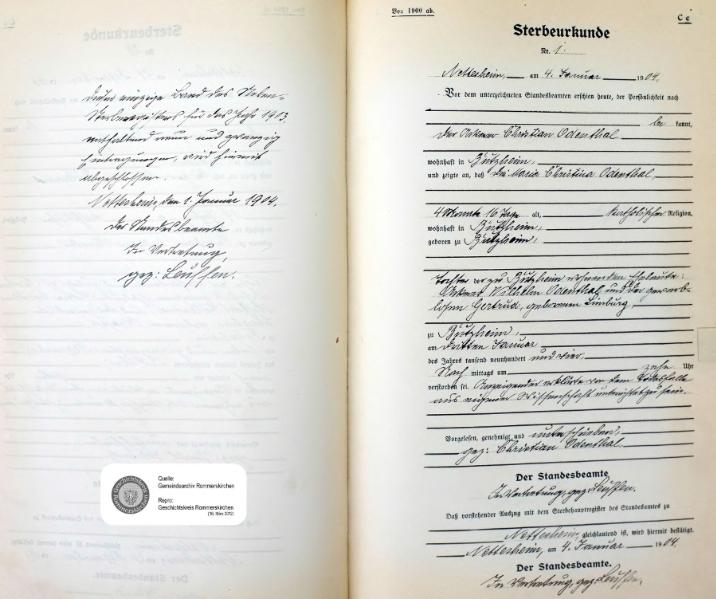 Dieser einzige Band des Neben-
Sterberegisters für das Jahr 1903
enthaltend neun und zwanzig
Eintragungen, wird hiermit
abgeschlossen.
Nettesheim, den 1. Januar 1904.
Der Standesbeamte
In Vertretung,
gez: Leussen.
Quelle:
Gemeindearchiv Rommerskirchen
Repro:
Geschichtskreis Rommerskirchen
Vor 1900 ab.
C e
Sterbeurkunde
Nr. 1.
Nettesheim, am 4. Januar 1904.
Vor dem unterzeichneten Standesbeamten erschien heute, der Persönlichkeit nach
be kannt,
der Ackerer Christian Odenthal
wohnhaft in Butzheim,
und zeigte an, daß die Maria Christina Odenthal,
4 Monate 16 Tage alt, katholischer Religion,
wohnhaft in Butzheim,
geboren zu Butzheim,
Tochter der zu Butzheim wohnenden Eheleute:
Ackerer Wilhelm Odenthal und der gewerb-
losen Gertrud, geborenen Limburg,
zu Butzheim,
am dritten Januar
des Jahres tausend neunhundert und vier
Nach mittags um zehn Uhr
verstorben sei. Anzeigender erklärte von dem Todesfalle
aus eigener Wissenschaft unterrichtet zu sein.
Vorgelesen, genehmigt und unterschrieben,
gez: Christian Odenthal
Der Standesbeamte,
In Vertretung, gez Leussen.
Daß vorstehender Auszug mit dem Sterbehauptregister des Standesamts zu
Nettesheim, gleichlautend ist, wird hiermit bestätigt.
Nettesheim, am 4. Januar 1904.
Der Standesbeamte.
In Vertretung, gez. Leussen.